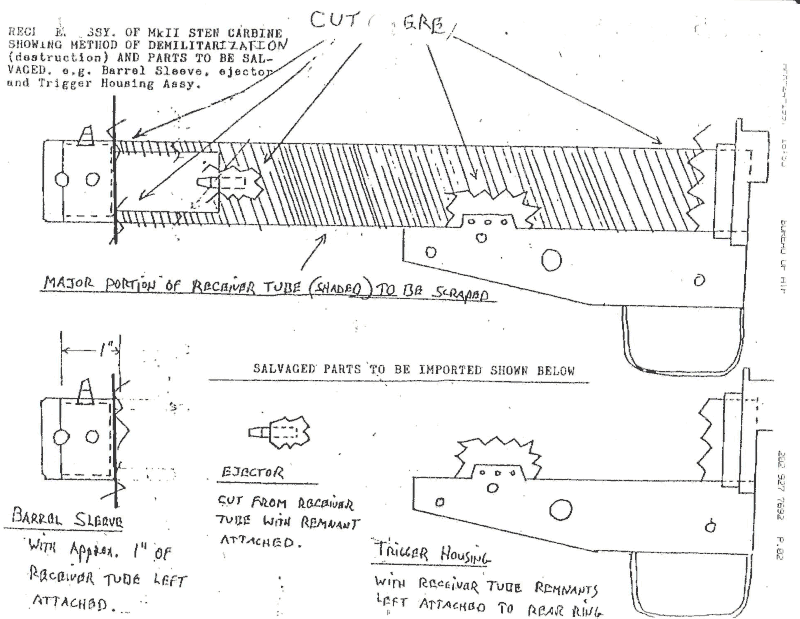 CUT
SSY. OF MkII STEN CARBINE
SHOWING METHOD OF DEMILITARIZATION
(destruction) AND PARTS TO BE SAL-
VAGED. e.g. Barrel Sleeve, ejector
and Trigger Housing Assy.
MAJOR PORTION OF RECEIVER TUBE (SHADED) TO BE SCRAPED
1"
SALVAGED PARTS TO BE IMPORTED SHOWN BELOW
BARREL SLEEVE
WITH APPROX. 1" OF
RECEIVER TUBE LEFT
ATTACHED.
EJECTOR
CUT FROM RECEIVER
TUBE WITH REMNANT
ATTACHED.
TRIGGER HOUSING
WITH RECEIVER TUBE REMNANTS
LEFT ATTACHED TO REAR RING
BUREAU OF ATF
202 927 7692 P.02